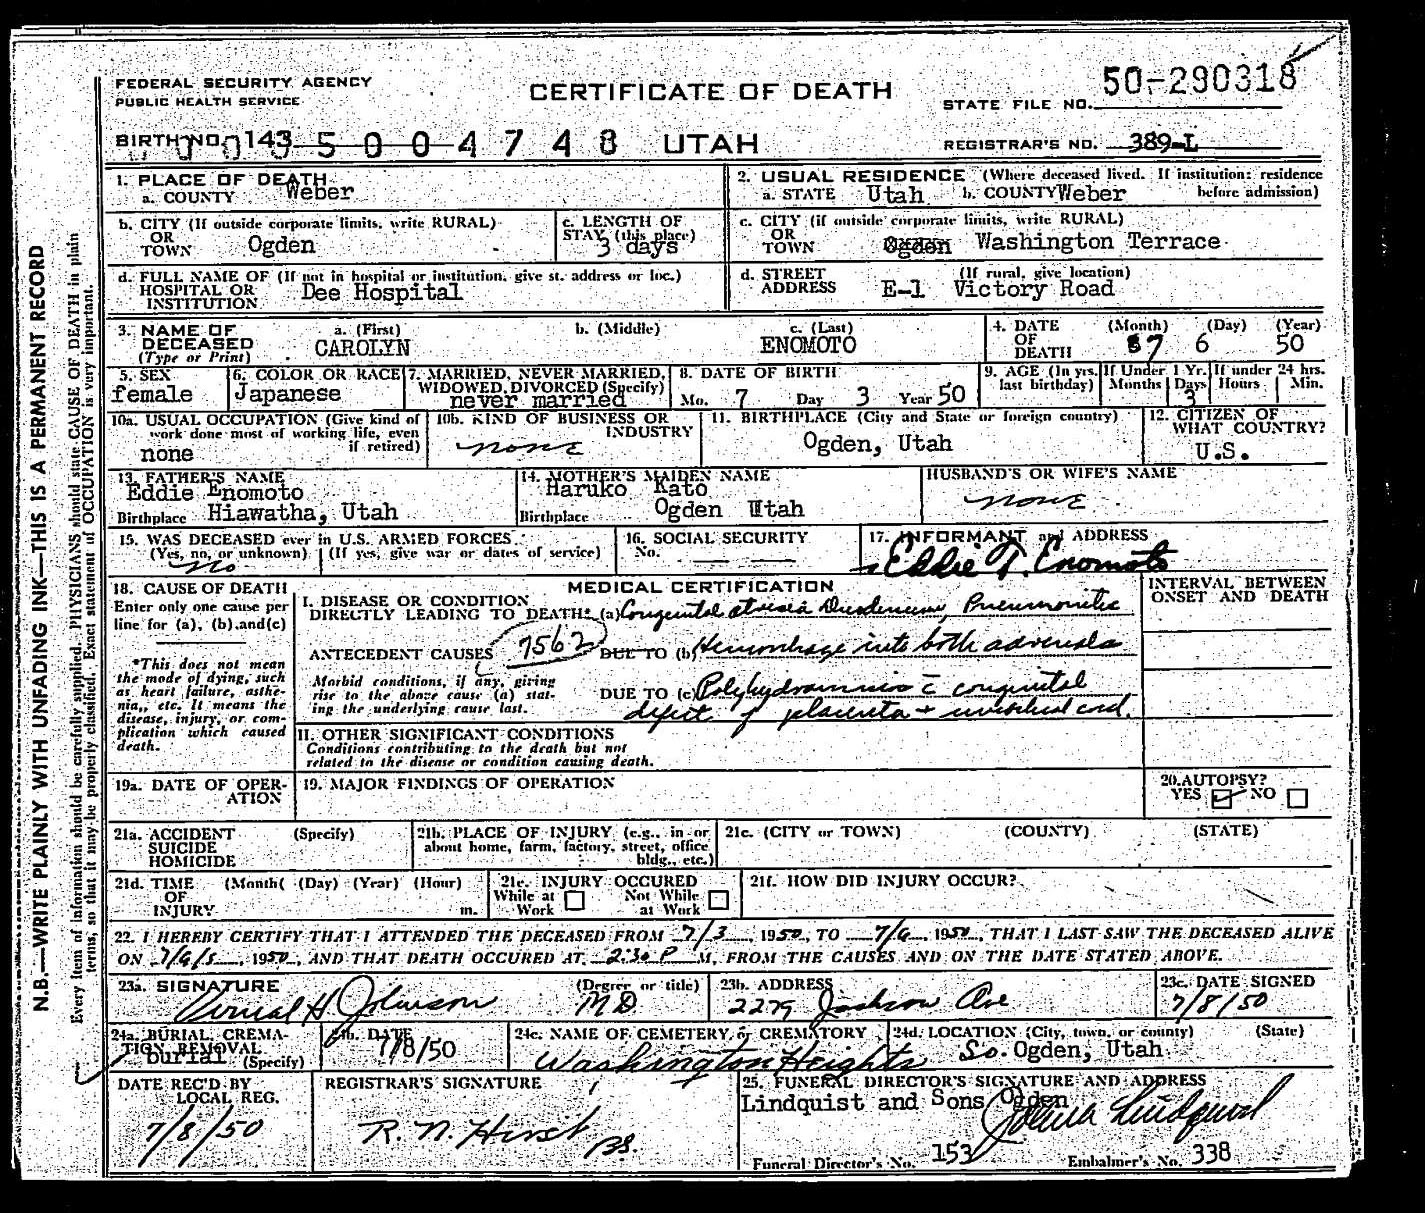 FEDERAL SECURITY AGENCY
PUBLIC HEALTH SERVICE
CERTIFICATE OF DEATH
STATE FILE NO. 50-290318
BIRTH NO. 143 5004748 UTAH
REGISTRAR'S NO. 389-L
1. PLACE OF DEATH
a. COUNTY Weber
2. USUAL RESIDENCE (Where deceased lived. If institution: residence before admission)
a. STATE Utah b. COUNTY Weber
b. CITY (If outside corporate limits, write RURAL)
OR
TOWN Ogden
c. LENGTH OF
STAY (this place)
3 days
c. CITY (if outside corporate limits, write RURAL)
OR
TOWN Ogden Washington Terrace
d. FULL NAME OF (If not in hospital or institution, give st. address or loc.)
HOSPITAL OR
INSTITUTION Dee Hospital
d. STREET (If rural, give location)
ADDRESS E-1 Victory Road
3. NAME OF
DECEASED
(Type or Print)
a. (First)
CAROLYN
b. (Middle)
c. (Last)
ENOMOTO
4. DATE
OF
DEATH
(Month) (Day) (Year)
7 6 50
5. SEX
female
6. COLOR OR RACE
Japanese
7. MARRIED, NEVER MARRIED,
WIDOWED, DIVORCED (Specify)
never married
8. DATE OF BIRTH
Mo. 7 Day 3 Year 50
9. AGE (In yrs. last birthday)
If Under 1 Yr.
Months Days
3
If under 24 hrs.
Hours Min.
10a. USUAL OCCUPATION (Give kind of
work done most of working life, even
if retired)
none
10b. KIND OF BUSINESS OR
INDUSTRY
none
11. BIRTHPLACE (City and State or foreign country)
Ogden, Utah
12. CITIZEN OF
WHAT COUNTRY?
U.S.
13. FATHER'S NAME
Eddie Enomoto
Birthplace Hiawatha, Utah
14. MOTHER'S MAIDEN NAME
Haruko Kato
Birthplace Ogden Utah
HUSBAND'S OR WIFE'S NAME
none
15. WAS DECEASED ever in U.S. ARMED FORCES
(Yes, no, or unknown) (If yes, give war or dates of service)
No
16. SOCIAL SECURITY
No.
17. INFORMANT and ADDRESS
Eddie T. Enomoto
18. CAUSE OF DEATH
Enter only one cause per
line for (a), (b), and (c)
*This does not mean
the mode of dying, such
as heart failure, asthe-
nia, etc. It means the
disease, injury, or com-
plication which caused
death.
MEDICAL CERTIFICATION
INTERVAL BETWEEN
ONSET AND DEATH
I. DISEASE OR CONDITION
DIRECTLY LEADING TO DEATH* (a) Congenital atresia Duodenum, Pneumonitis
ANTECEDENT CAUSES 7562 DUE TO (b) Hemorrhage into both adrenals
Morbid conditions, if any, giving
rise to the above cause (a) stat-
ing the underlying cause last.
DUE TO (c) Polyhydramnios c̄ congenital
defect of placenta + umbilical cord.
II. OTHER SIGNIFICANT CONDITIONS
Conditions contributing to the death but not
related to the disease or condition causing death.
19a. DATE OF OPER-
ATION
19. MAJOR FINDINGS OF OPERATION
20. AUTOPSY?
YES NO
21a. ACCIDENT (Specify)
SUICIDE
HOMICIDE
21b. PLACE OF INJURY (e.g., in or
about home, farm, factory, street, office
bldg., etc.)
21c. (CITY or TOWN) (COUNTY) (STATE)
21d. TIME (Month( (Day) (Year) (Hour)
OF
INJURY m.
21e. INJURY OCCURED
While at Work
Not While at Work
21f. HOW DID INJURY OCCUR?
22. I HEREBY CERTIFY THAT I ATTENDED THE DECEASED FROM 7/3, 1950, TO 7/6, 1950, THAT I LAST SAW THE DECEASED ALIVE
ON 7/6/5, 1950, AND THAT DEATH OCCURED AT 2:30 P M, FROM THE CAUSES AND ON THE DATE STATED ABOVE.
23a. SIGNATURE (Degree or title)
H Johnson MD
23b. ADDRESS
2279 Jackson Ave
23c. DATE SIGNED
7/8/50
24a. BURIAL, CREMA-
TION, REMOVAL
Burial (Specify)
24b. DATE
7/8/50
24c. NAME OF CEMETERY, or CREMATORY
Washington Heights
24d. LOCATION (City, town, or county) (State)
So. Ogden, Utah
DATE REC'D BY
LOCAL REG.
7/8/50
REGISTRAR'S SIGNATURE
R. N. Hirst
25. FUNERAL DIRECTOR'S SIGNATURE AND ADDRESS
Lindquist and Sons Ogden
Lindquist
Funeral Director's No. 153 Embalmer's No. 338
N.B.—WRITE PLAINLY WITH UNFADING INK—THIS IS A PERMANENT RECORD
Every item of information should be carefully supplied. PHYSICIANS should state CAUSE OF DEATH in plain
terms, so that it may be properly classified. Exact statement of OCCUPATION is very important.